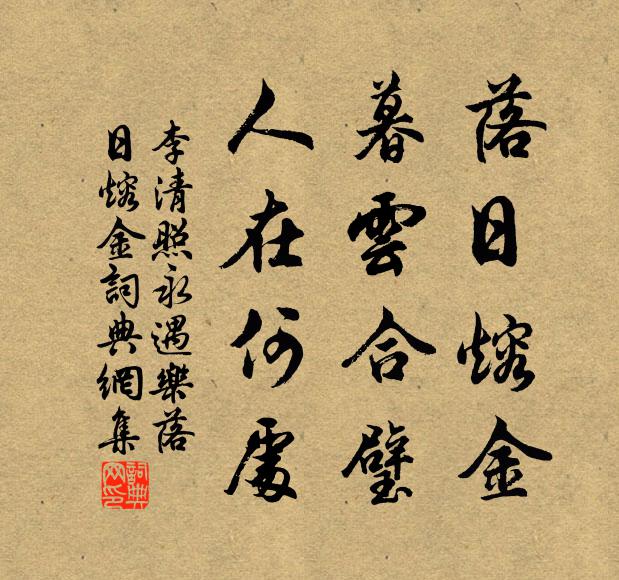 落日熔金
暮雲合璧
人在何處
李清照永遇樂落
日熔金詞典網集
詞典網印